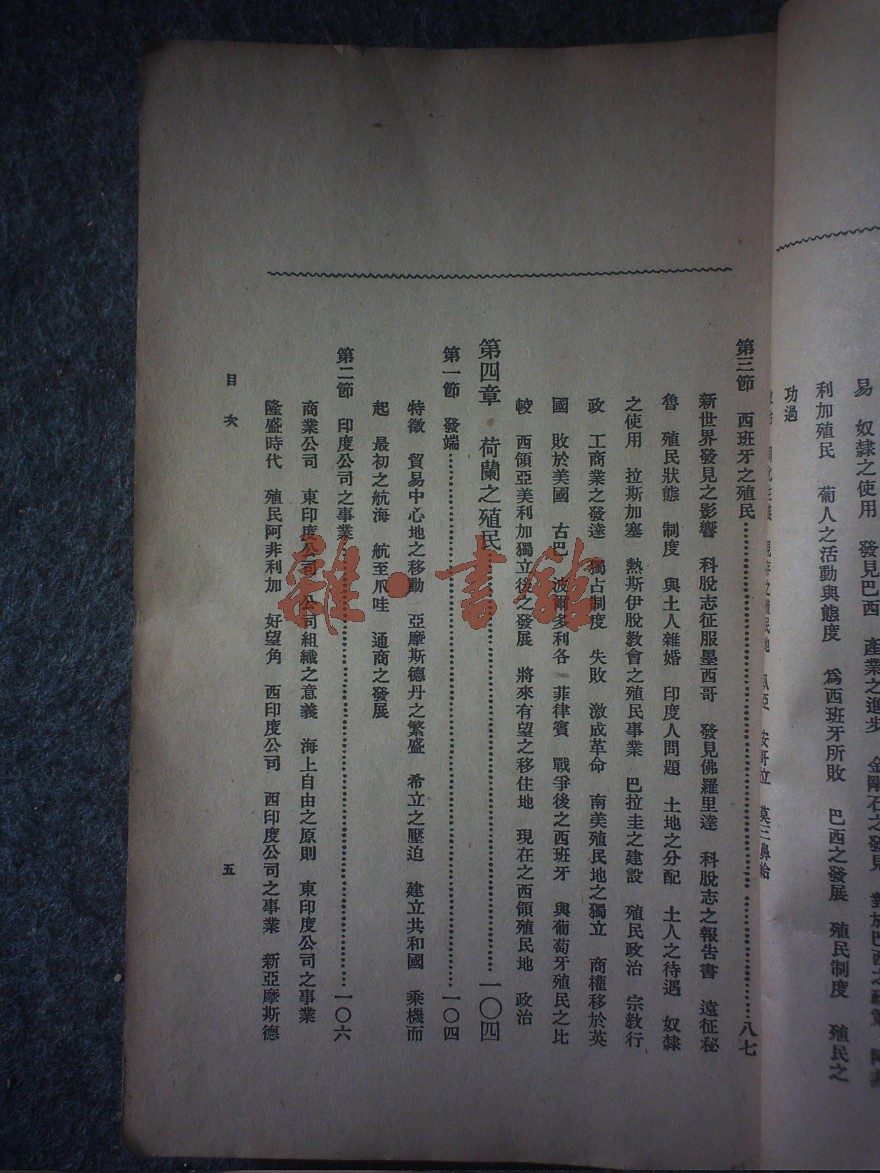 易　奴隸之使用　發見巴西　產業之進步　金剛石之發見
利加殖民　葡人之活動與態度　爲西班牙所敗　巴西之發展　殖民制度　殖民之
功過
第三節　西班牙之殖民……八七
新世界發見之影響　科脫志征服墨西哥　發見佛羅里達　科脫志之報告書　遠征秘
魯　殖民狀態　制度　與土人雜婚　印度人問題　土地之分配　土人之待遇　奴隸
之使用　拉斯加塞　熱斯伊脫教會之殖民事業　巴拉圭之建設　殖民政治　宗教行
政　工商業之發達　獨占制度　失敗　激成革命　南美殖民地之獨立　商權移於英
國　敗於美國　古巴　波爾多利各　菲律賓　戰爭後之西班牙　與葡萄牙殖民之比
較　西領亞美利加獨立後之發展　將來有望之移住地　現在之西領殖民地　政治
第四章　荷蘭之殖民……一〇四
第一節　發端……一〇四
特徵　貿易中心地之移動　亞摩斯德丹之繁盛　希立之壓迫　建立共和國　乘機而
起　最初之航海　航至爪哇　通商之發展
第二節　印度公司之事業……一〇六
商業公司　東印度公司　公司組織之意義　海上自由之原則　東印度公司之事業
隆盛時代　殖民阿非利加　好望角　西印度公司　西印度公司之事業　新亞摩斯德
目次
五
雜·書館